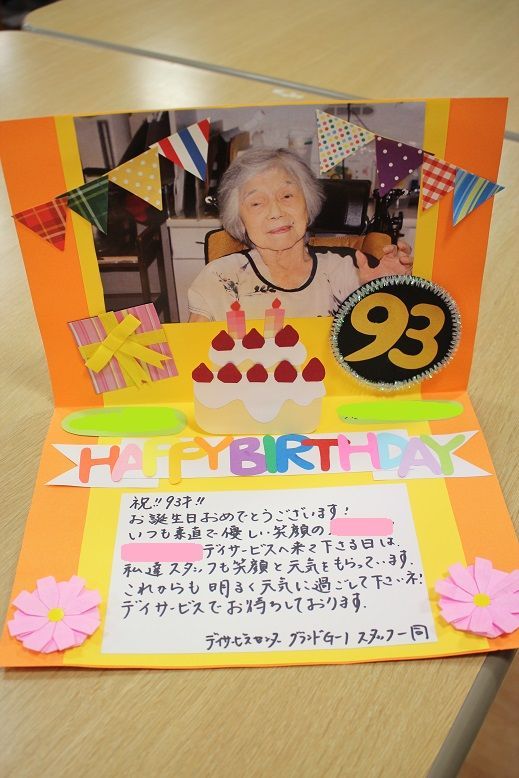 93
HAPPYBIRTHDAY
祝!!93才!!
お誕生日おめでとうございます!
いつも素直で優しい笑顔の
デイサービスへ来て下さる日は、
私達スタッフも笑顔と元気をもらっています。
これからも明るく元気に過ごして下さいネ!
デイサービスでお待ちしております。
デイサービスセンター グランドG-1 スタッフ一同